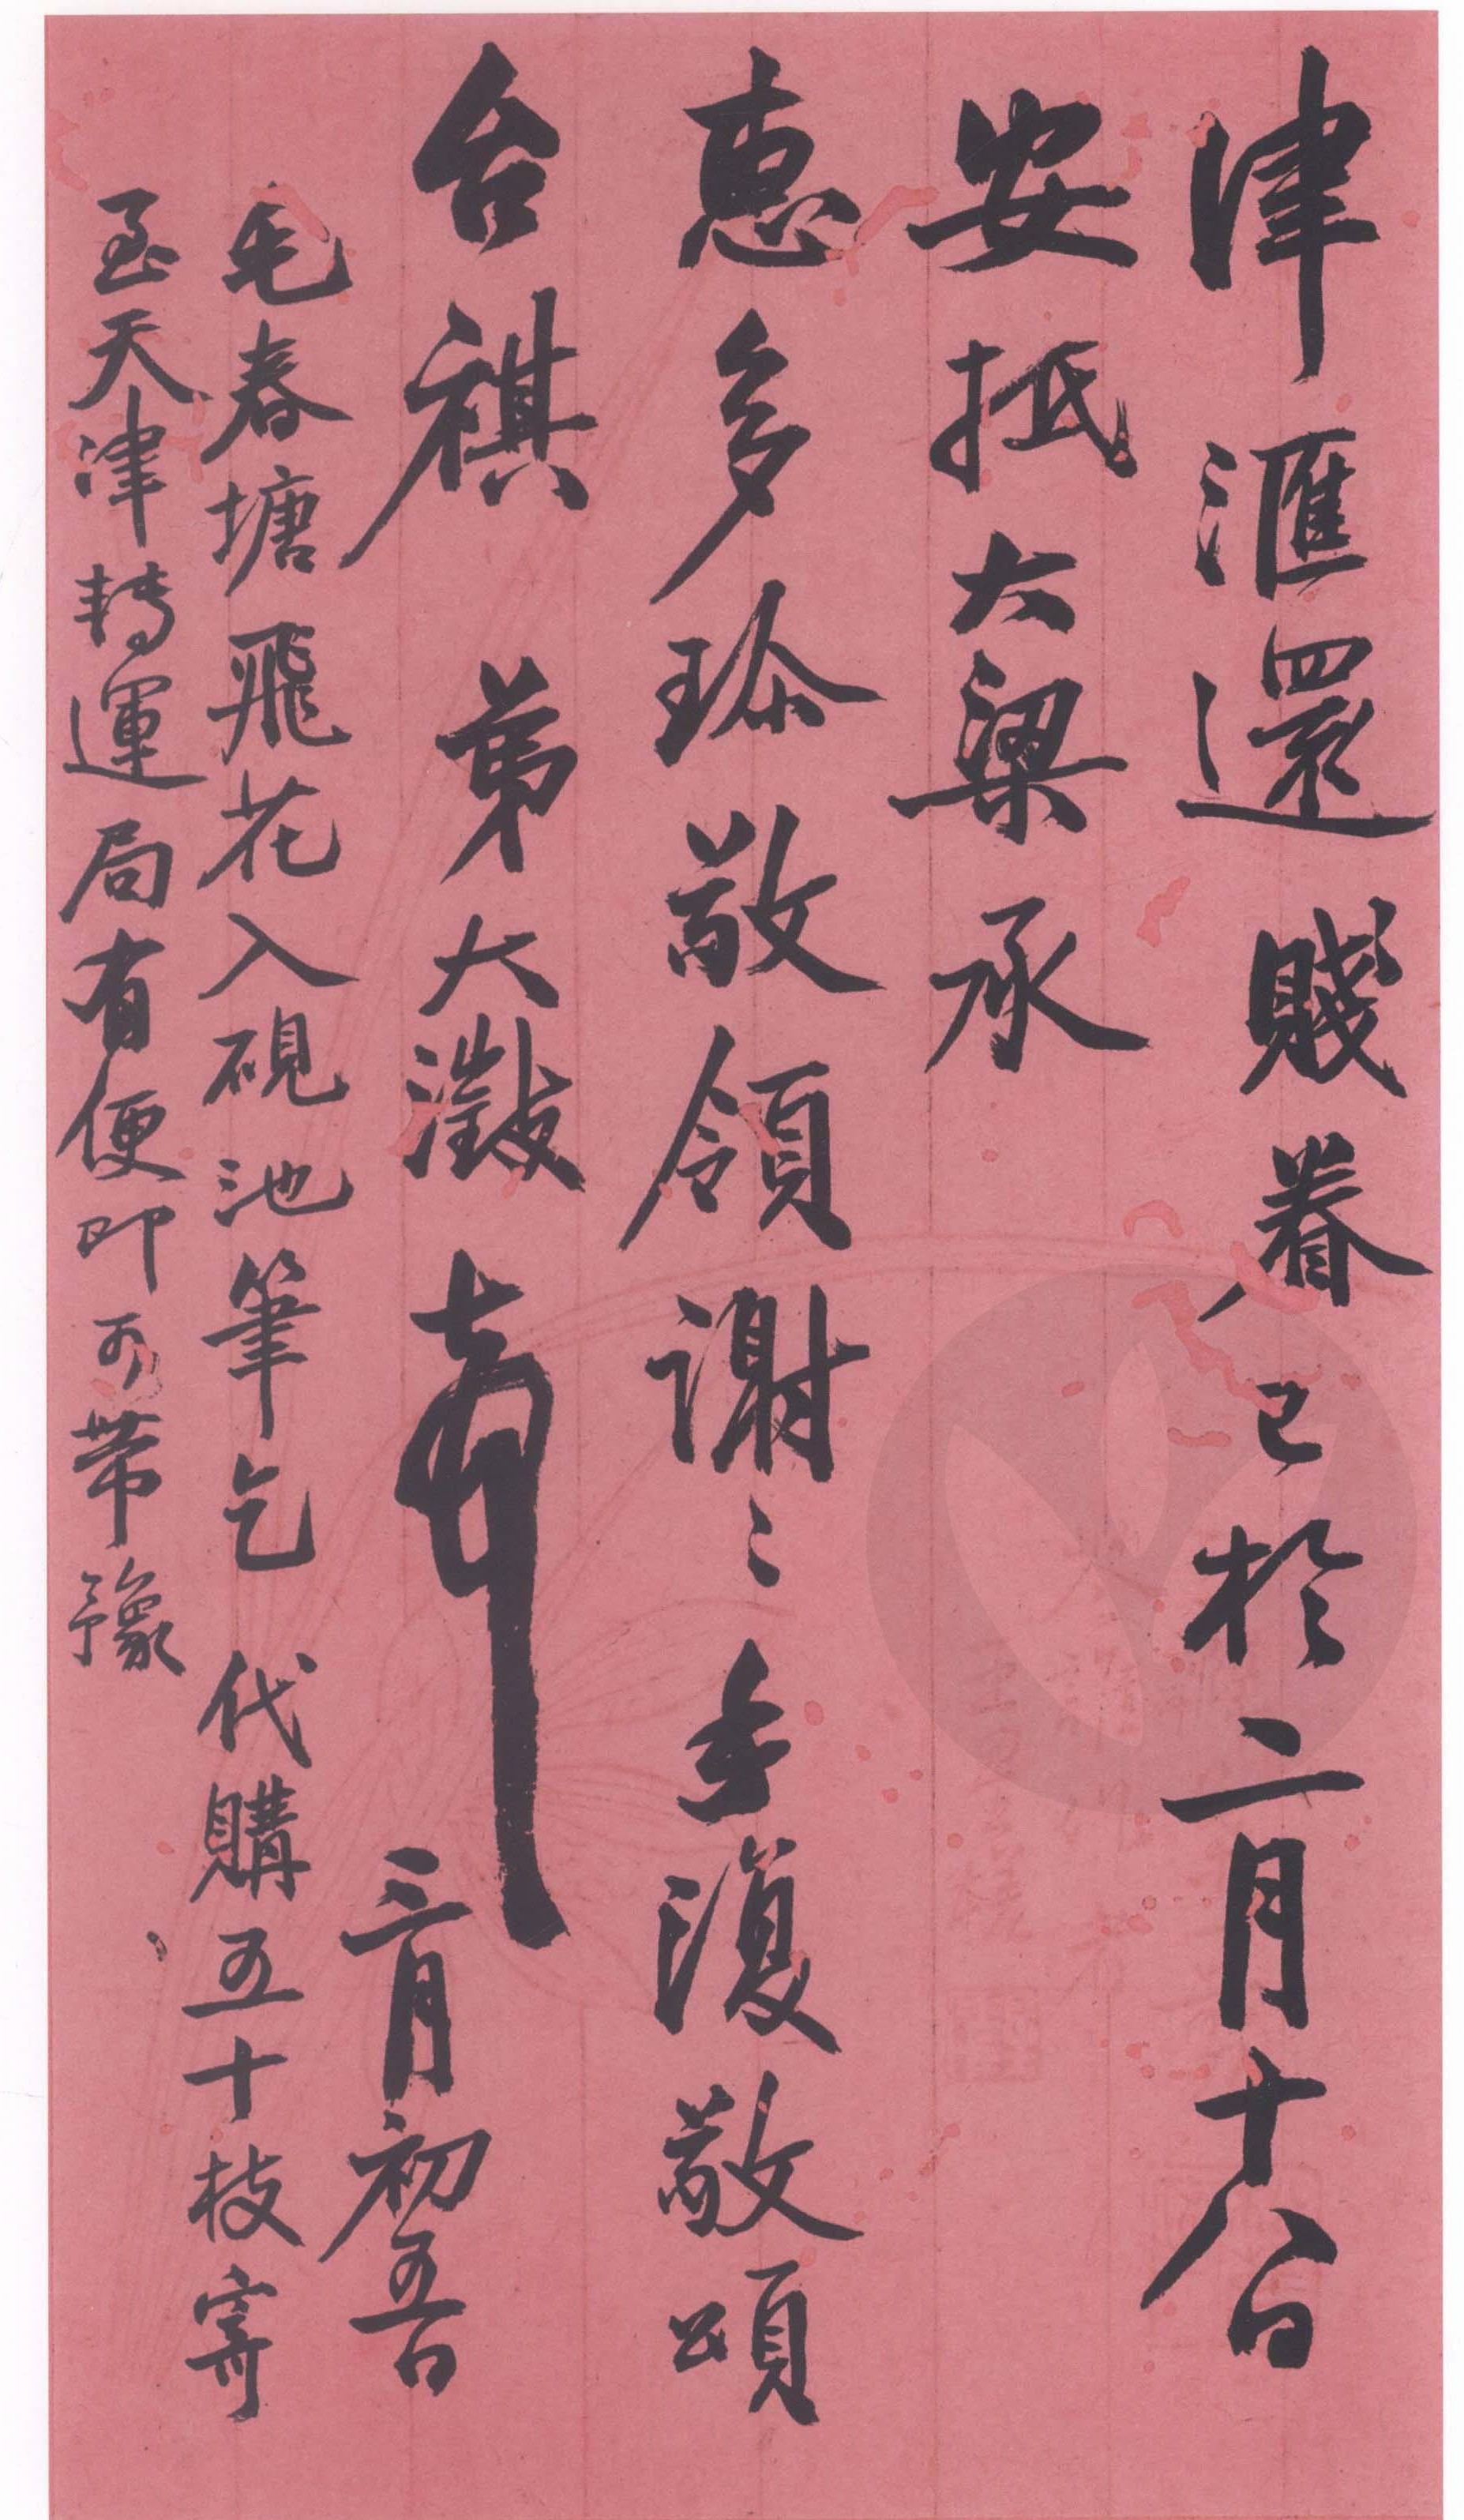 津滙還賤眷已於二月十八日
安抵大梁承
惠多珍敬領謝〻手復敬頌
台祺 弟大澂頓首 三月初五日
毛春塘飛花入硯池筆乞 代購五十枝寄
至天津轉運局有便即可帶豫